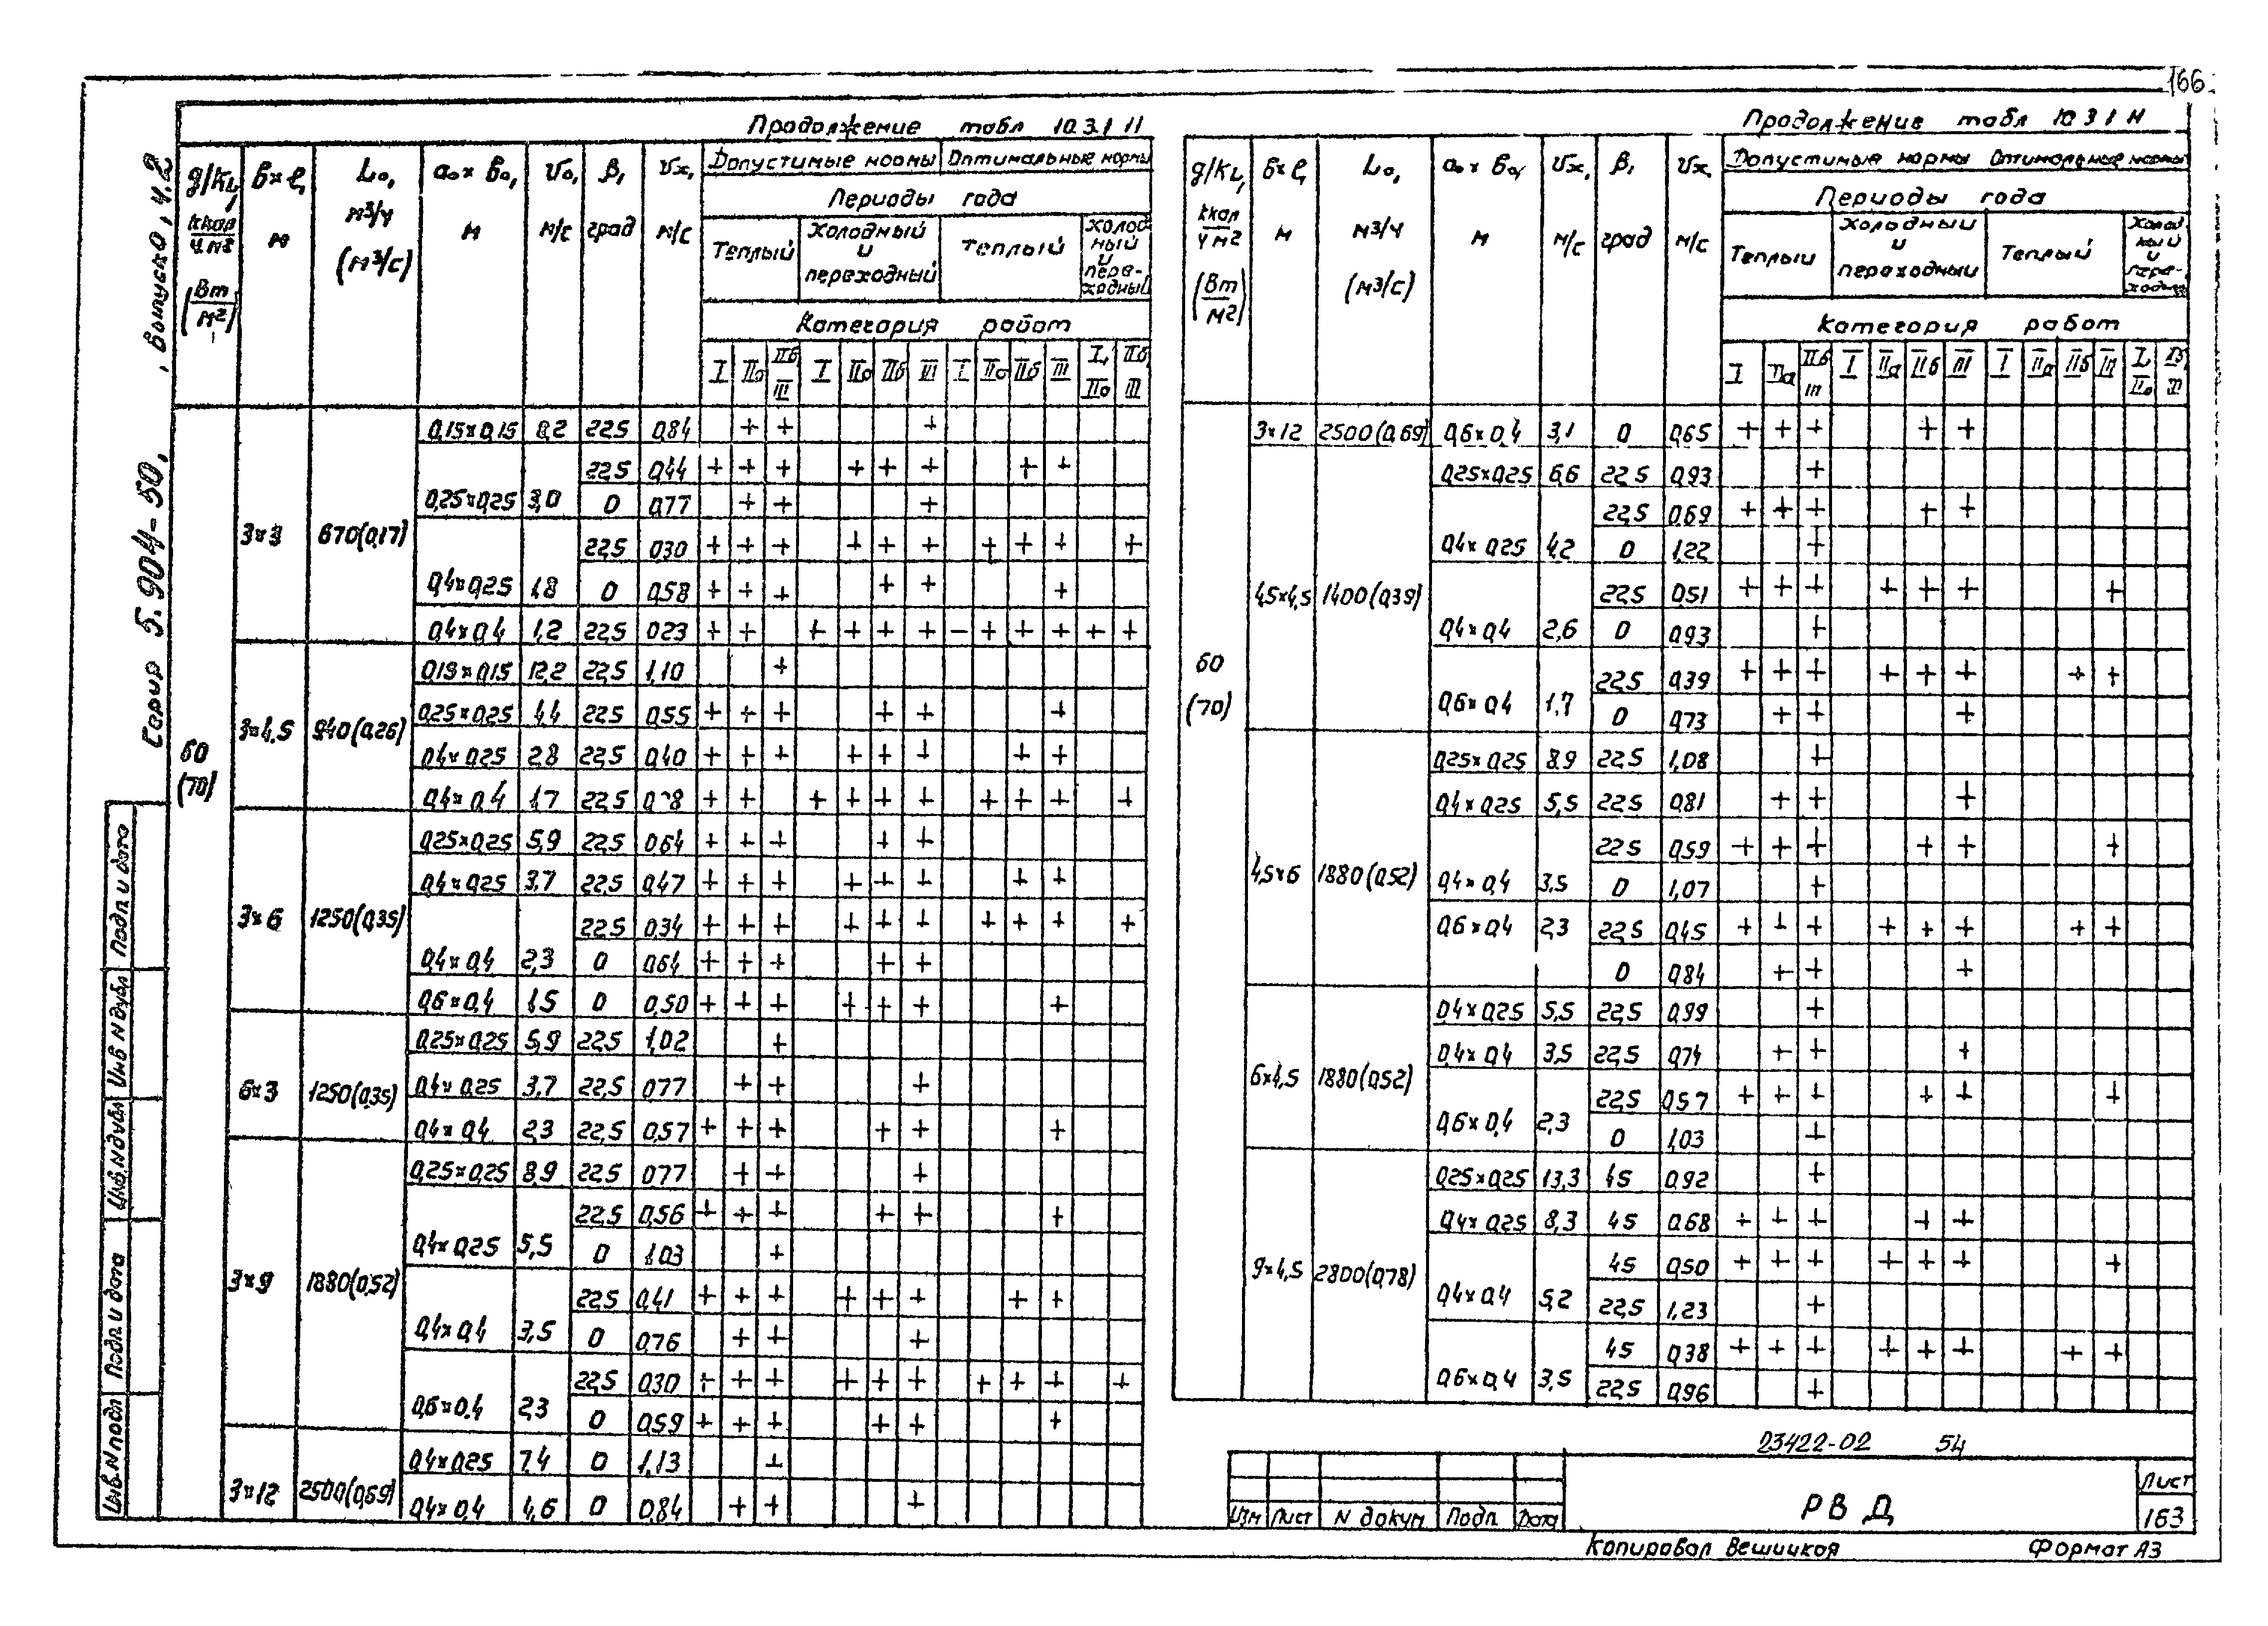 166
Серия 5.904-50, выпуск 0, ч.2
Продолжение табл 10.3.1 11
g/кL, б×l, L₀, a₀×b₀, v₀, β, vx, Допустимые нормы Оптимальные нормы
ккал/ч м² (Вт/м²) м м³/ч (м³/с) м м/с град м/с
Периоды года
Теплый Холодный и переходный Теплый Холодный и переходный
Категория работ
I IIа IIб, III I IIа IIб III I IIа IIб III I, IIа IIб, III
60 (70)
3×3 670(0,17)
0,15×0,15 8,2 22,5 0,84 + + +
0,25×0,25 3,0 22,5 0,44 + + + + + + + +
0 0,77 + + +
0,4×0,25 1,8 22,5 0,30 + + + + + + + + + +
0 0,58 + + + + + +
0,4×0,4 1,2 22,5 0,23 + + + + + + − + + + + +
3×4,5 940(0,26)
0,15×0,15 12,2 22,5 1,10 +
0,25×0,25 4,4 22,5 0,55 + + + + + +
0,4×0,25 2,8 22,5 0,40 + + + + + + + +
0,4×0,4 1,7 22,5 + + + + + + + + + +
3×6 1250(0,35)
0,25×0,25 5,9 22,5 0,64 + + + + +
0,4×0,25 3,7 22,5 0,47 + + + + + + + +
0,4×0,4 2,3 22,5 0,34 + + + + + + + + + +
0 0,64 + + + + +
0,6×0,4 1,5 0 0,50 + + + + + + +
6×3 1250(0,35)
0,25×0,25 5,9 22,5 1,02 +
0,4×0,25 3,7 22,5 0,77 + + +
0,4×0,4 2,3 22,5 0,57 + + + + + +
3×9 1880(0,52)
0,25×0,25 8,9 22,5 0,77 + + +
0,4×0,25 5,5 22,5 0,56 + + + + + +
0 1,03 +
0,4×0,4 3,5 22,5 0,41 + + + + + + + +
0 0,76 + + +
0,6×0,4 2,3 22,5 0,30 + + + + + + + + + +
0 0,59 + + + + + +
3×12 2500(0,69)
0,4×0,25 7,4 0 1,13 +
0,4×0,4 4,6 0 0,84 + + +
Продолжение табл 10.3.1 11
g/кL, б×l, L₀, a₀×b₀, vx, β, vx, Допустимые нормы Оптимальные нормы
ккал/ч м² (Вт/м²) м м³/ч (м³/с) м м/с град м/с
Периоды года
Теплый Холодный и переходный Теплый Холодный и переходный
Категория работ
I IIа IIб III I IIа IIб III I IIа IIб III I, IIа IIб, III
60 (70)
3×12 2500(0,69) 0,6×0,4 3,1 0 0,65 + + + + +
4,5×4,5 1400(0,39)
0,25×0,25 6,6 22,5 0,93 +
0,4×0,25 4,2 22,5 0,69 + + + + +
0 1,22 +
0,4×0,4 2,6 22,5 0,51 + + + + + + +
0 0,93 +
0,6×0,4 1,7 22,5 0,39 + + + + + + + +
0 0,73 + + +
4,5×6 1880(0,52)
0,25×0,25 8,9 22,5 1,08 +
0,4×0,25 5,5 22,5 0,81 + + +
0,4×0,4 3,5 22,5 0,59 + + + + + +
0 1,07 +
0,6×0,4 2,3 22,5 0,45 + + + + + + + +
0 0,84 + + +
6×4,5 1880(0,52)
0,4×0,25 5,5 22,5 0,99 +
0,4×0,4 3,5 22,5 0,74 + + +
0,6×0,4 2,3 22,5 0,57 + + + + + +
0 1,03 +
9×4,5 2800(0,78)
0,25×0,25 13,3 45 0,92 +
0,4×0,25 8,3 45 0,68 + + + + +
0,4×0,4 5,2 45 0,50 + + + + + + +
22,5 1,23 +
0,6×0,4 3,5 45 0,38 + + + + + + + +
22,5 0,96 +
23422-02 54
Изм Лист N докум Подп. Дата
РВ Д
Лист
163
Копировал Вешицкая Формат А3
Подп. и дата
Инв N дубл
Инв. N дубл
Подп. и дата
Инв. N подл